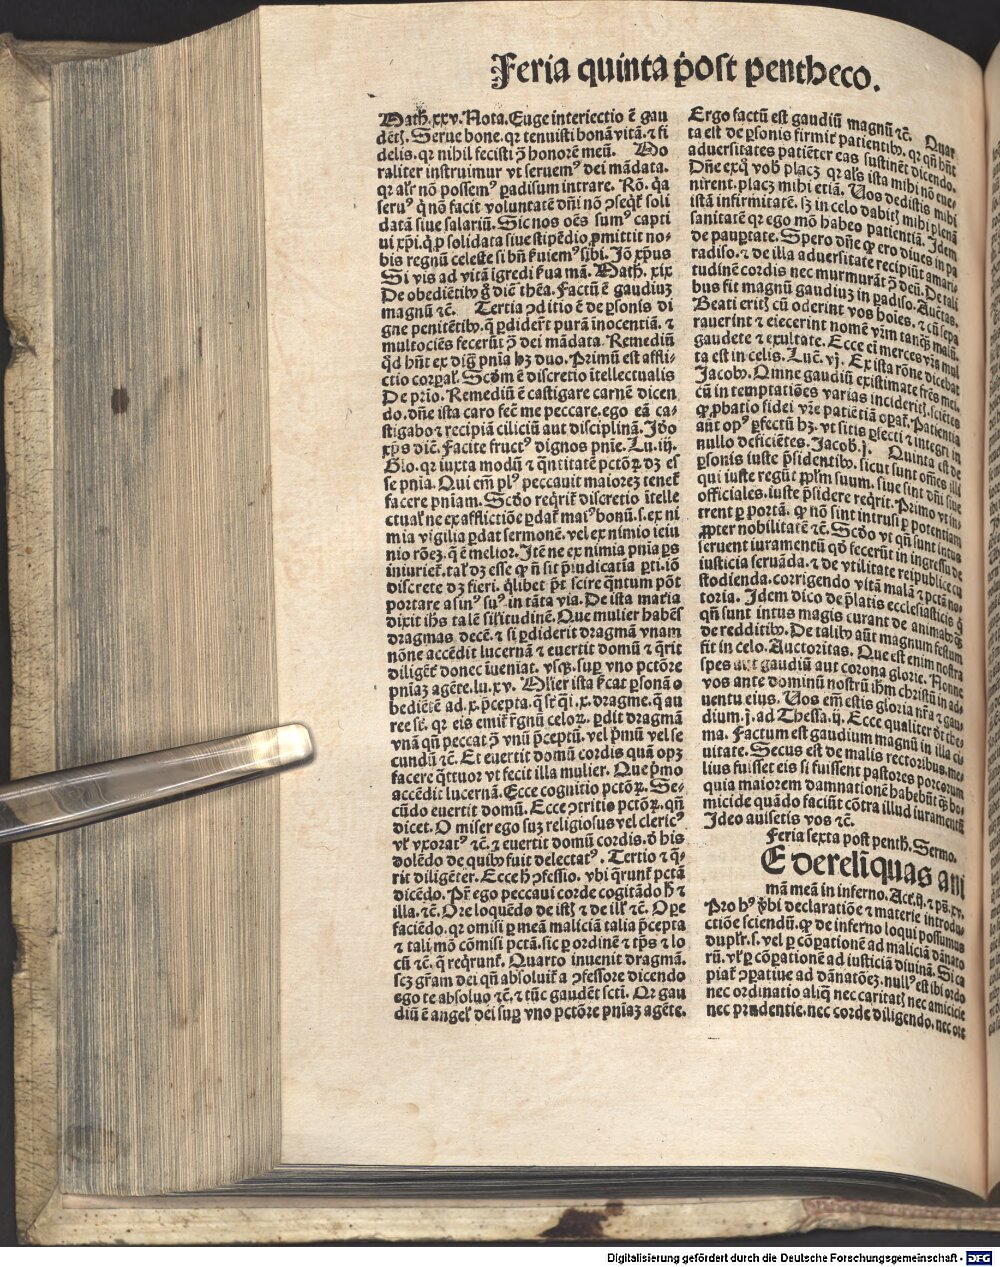 Feria quinta p̄ost pentheco.
Math̄. xxv. Nota. Euge interiectio ē gau
dētꝭ. Serue bone. qꝛ tenuisti bonā vitā. ⁊ fi
delis. qꝛ nihil fecisti ꝯ̄ honorē meū. Mo
raliter instruimur vt seruemꝰ dei mādata.
qꝛ alr̄ nō possemꝰ ꝑadisum intrare. Rō. q̄a
seruꝰ q̄ nō facit voluntatē dn̄i nō ꝯseqt̄ soli
datā siue salariū. Sic nos oēs sumꝰ capti
ui xp̄i. q̄ ꝓ solidata siue stipēdio ꝓmittit no-
bis regnū celeste si bn̄ ẜuiemꝰ sibi. Jō xp̄us
Si vis ad vitā igredi ẜua mā. Math̄. xix
De obediētibꝰ g̊ dic̄ thēa. Factū ē gaudiuꝫ
magnū ⁊c̄. Tertia ꝯditio ē de ꝑsonis di
gne penitētibꝰ. q̄ ꝑdider̄t purā inocentiā. ⁊
multociēs fecerūt ꝯ̄ dei mādata. Remediū
qd̄ hn̄t ex diḡ pn̄ia hꝫ duo. Primū est affli-
ctio corꝑal̄. Scdm ē discretio ītellectualis
De pr̄io. Remediū ē castigare carnē dicen
do. dn̄e ista caro fec̄ me peccare. ego eā ca-
stigabo ⁊ recipiā ciliciū aut disciplinā. Jdo
xp̄s dic̄. Facite fructꝰ dignos pn̄ie. Lu. iij.
Glo. qꝛ iuxta modū ⁊ q̄ntitatē pctōꝝ dꝫ es
se pn̄ia. Qui em̄ plꝰ peccauit maiorez tenet̄
facere pn̄iam. Scdo reqrit̄ discretio ītelle
ctual̄ ne ex afflictiōe ꝑdat̄ maiꝰ bonū. s. ex ni
mia vigilia ꝑdat sermonē. vel ex nimio ieiu
nio rōeꝫ. q̄ ē melior. Jtē ne ex nimia pn̄ia ꝑs
iniuriet̄. tal̄ dꝫ esse ꝙ n̄ sit p̄iudicatia ꝑti. iō
discrete dꝫ fieri. q̄libet p̄t scire q̄ntum pōt
portare asinꝰ suꝰ in tāta via. De ista mat̄ia
dixit ih̄s talē sil̄itudinē. Que mulier habēs
dragmas decē. ⁊ si ꝑdiderit dragmā vnam
nōne accēdit lucernā ⁊ euertit domū ⁊ q̄rit
diligēt̄ donec īueniat. vsqꝫ. suꝑ vno pctōre
pniaꝫ agēte. lu. xv. Mlier ista ẜcat ꝑsonā o
bediētē ad. x. p̄cepta. q̄ sr̄ q̄i .x. dragme. q̄ au
ree sr̄. qꝛ eis emit̄ r̄gnū celoꝝ. ꝑdit dragmā
vnā qn̄ peccat ꝯ̄ vnū p̄ceptū. vel p̄mū vel se
cundū ⁊c̄. Et euertit domū cordis quā opꝫ
facere q̄ttuor vt fecit illa mulier. Que p̄mo
accēdit lucernā. Ecce cognitio pctōꝝ. Se-
cūdo euertit domū. Ecce ꝯtritio pctōꝝ. qn̄
dicet. O miser ego suꝫ religiosus vel clericꝰ
vl̄ vxoratꝰ ⁊c̄. ⁊ euertit domū cordis. d̄ his
dolēdo de quibꝰ fuit delectatꝰ. Tertio ⁊ q̄-
rit diligēter. Ecce h̄ ꝯfessio. vbi q̄runt̄ pctā
dicēdo. Pr̄ ego peccaui corde cogitādo h̄ ⁊
illa. ⁊c̄. Ore loquēdo de istꝭ ⁊ de ill̄ ⁊c̄. Oꝑe
faciēdo. qꝛ omisi ꝑ meā maliciā talia p̄cepta
⁊ tali mō cōmisi pctā. sic ꝑ ordinē ⁊ tp̄s ⁊ lo
cū ⁊c̄. q̄ reqrunt̄. Quarto inuenit dragmā.
scꝫ gr̄am dei qn̄ absoluit̄ a ꝯfessore dicendo
ego te absoluo ⁊c̄. ⁊ tūc gaudēt scti. Qꝛ gau
diū ē angel̄ dei suꝑ vno pctōre pniaꝫ agēte.
Ergo factū est gaudiū magnū ⁊c̄. Quar
ta est de ꝑsonis firmit̄ patientibꝰ. qꝛ qn̄ hn̄t
aduersitates patiēter eas sustinēt dicendo.
Dn̄e exq̄ vob̄ placꝫ qꝛ al̄s ista mihi nō eue-
nirent. placꝫ mihi etiā. Vos dedistis mihi
istā infirmitatē. sꝫ in celo dabitꝭ mihi plenā
sanitatē qꝛ ego mō habeo patientiā. Jdem
de pauꝑtate. Spero dn̄e ꝙ ero diues in pa
radiso. ⁊ de illa aduersitate recipiūt amari-
tudinē cordis nec murmurāt ꝯ̄ deū. De tali
bus fit magnū gaudiuꝫ in ꝑadiso. Auctas.
Beati eritꝭ cū oderint vos hoīes. ⁊ cū sepa
rauerint ⁊ eiecerint nomē vr̄m tanqꝫ malū.
gaudete ⁊ exultate. Ecce em̄ merces vr̄a mul
ta est in celis. Luc̄. vj. Ex ista rōne dicebat
Jacobꝰ. Omne gaudiū existimate fr̄es mei.
cū in temptatiōes varias incideritꝭ. sciētes
ꝙ ꝓbatio fidei vr̄e patiētiā oꝑat̄. Patientia
aūt opꝰ ꝑfectū hꝫ. vt sitis ꝑfecti ⁊ integri in
nullo deficiētes. Jacob̄. j. Quinta est de
ꝑsonis iuste p̄sidentibꝰ. sicut sunt om̄es illi
qui iuste regūt ppl̄m suum. siue sint dn̄i siue
officiales. iuste p̄sidere reqrit̄. Primo vt in-
trent ꝑ portā. ꝙ nō sint intrusi ꝑ potentiam
ꝓpter nobilitatē ⁊c̄. Scdo vt qn̄ sunt intus
seruent iuramentū qd̄ fecerūt in ingressu de
iusticia seruāda. ⁊ de vtilitate reipublice cu
stodienda. corrigendo vitā malā ⁊ pctā no-
toria. Jdem dico de p̄latis ecclesiasticis q̄
qn̄ sunt intus magis curant de animabꝰ qꝫ
de redditibꝰ. De talibꝰ aūt magnum festum
fit in celo. Auctoritas. Que est enim nostra
spes aut gaudiū aut corona glorie. Nonne
vos ante dominū nostrū ih̄m christū in ad-
uentu eius. Vos em̄ estis gloria nr̄a ⁊ gau-
dium. j. ad Thessa. ij. Ecce qualiter dt̄ the-
ma. Factum est gaudium magnū in illa ci-
uitate. Secus est de malis rectoribus. me-
lius fuisset eis si fuissent pastores porcorum
quia maiorem damnationē habebūt qꝫ ho-
micide quādo faciūt cōtra illud iuramentū
Jdeo auisetis vos ⁊c̄.
Feria sexta post penth̄. Sermo.
E derelīquas ani
mā meā in inferno. Act̄. ij. ⁊ ps̄. xv.
Pro hꝰ v̄bi declaratiōe ⁊ materie introdu-
ctiōe sciendū. ꝙ de inferno loqui possumus
duplr̄. s. vel ꝑ cōꝑationē ad maliciā dānato
rū. vl̄ ꝑ cōꝑationē ad iusticiā diuinā. Si ca
piat̄ ꝯꝑatiue ad dānatōeꝫ. nullꝰ est ibi ordo
nec ordinatio aliq̄ nec caritatꝭ nec amicicie
nec prudentie. nec corde diligendo. nec ore
Digitalisierung gefördert durch die Deutsche Forschungsgemeinschaft - DFG